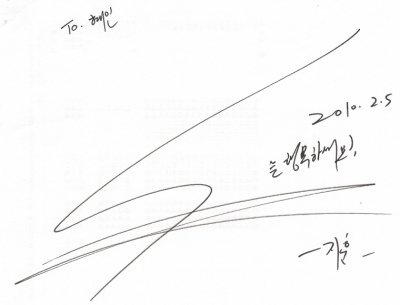 To. 혜인
2010. 2. 5
늘 행복하세요!
- 지훈 -